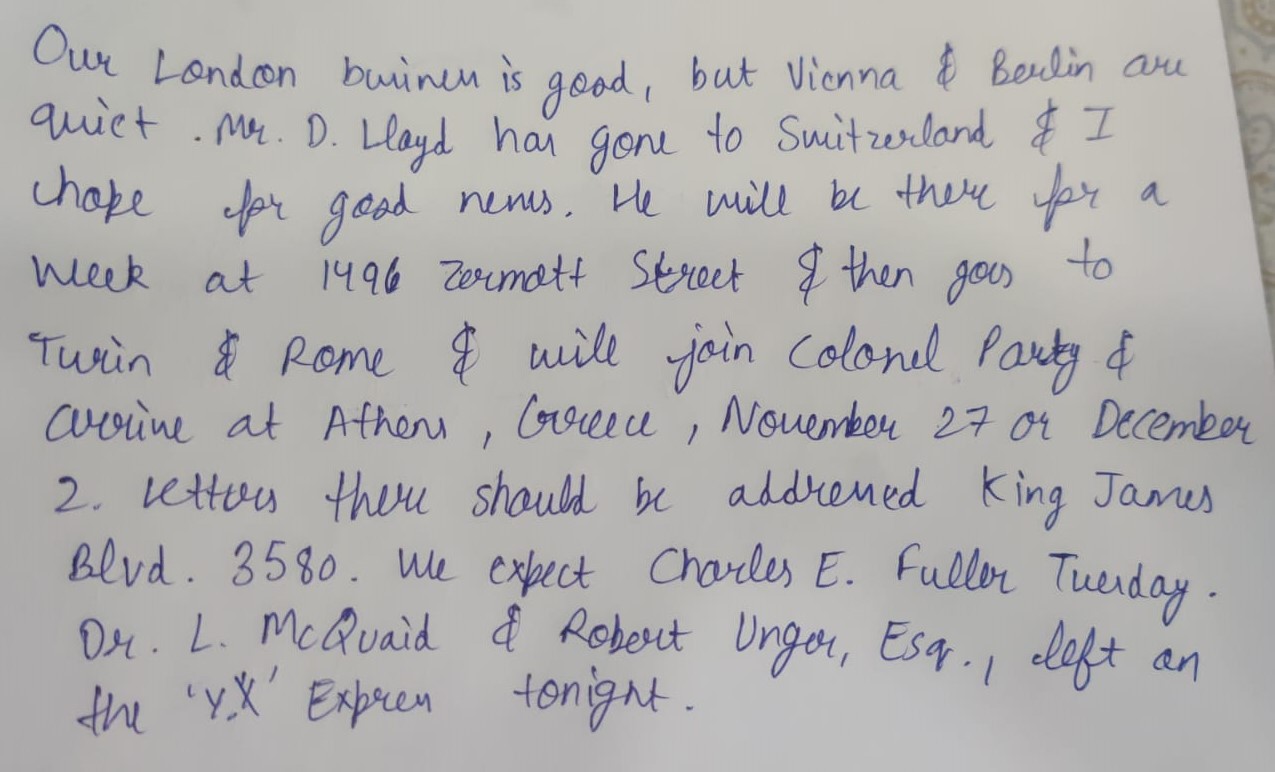 Our London business is good, but Vienna & Berlin are
quiet . Mr. D. Lloyd has gone to Switzerland & I
hope for good news. He will be there for a
week at 1496 Zermott Street & then goes to
Turin & Rome & will join Colonel Party &
arrive at Athens , Greece , November 27 or December
2. Letters there should be addressed King James
Blvd. 3580. We expect Charles E. Fuller Tuesday .
Dr. L. McQuaid & Robert Unger, Esq., left on
the 'Y.X' Express tonight .